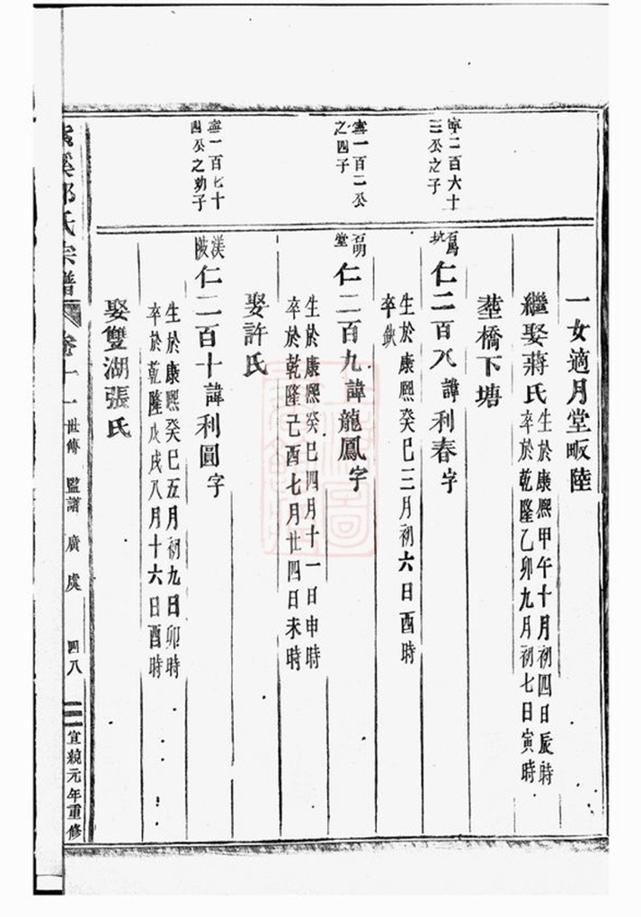 一女適月堂畈陸
繼娶蔣氏 生於康熙甲午十月初四日辰時
卒於乾隆乙卯九月初七日寅時
塟橋下塘
寧二百六十
三公之子
仁二百八諱利春字
生於康熙癸巳三月初六日酉時
卒缺
寧一百二公
之四子
堂
仁二百九諱龍鳳字
生於康熙癸巳四月十一日申時
卒於乾隆己酉七月廿四日未時
娶許氏
寧一百七十
四公之幼子
渼陂
仁二百十諱利圓字
生於康熙癸巳五月初九日卯時
卒於乾隆戊戌八月十六日酉時
娶雙湖張氏
溪 氏宗譜 卷十一 世傳 監譜 廣虞 四八 宣統元年重修